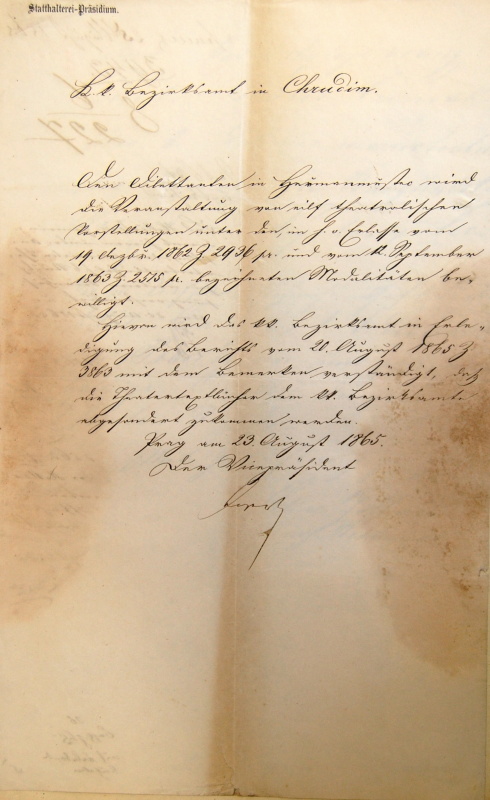 Statthalterei-Präsidium.
K. k. Bezirksamt in Chrudim.
Den Dilettanten in Heřmanměstec wird
die Veranstaltung von eilf theatralischen
Vorstellungen unter den, in h. o. Erlasse vom
19. Dezbr. 1862 Z 2936 pr. und vom 12. September
1863 Z. 2515 pr. bezeichneten Modalitäten be-
willigt.
Hievon wird das k.k. Bezirksamt in Erle-
digung des Berichts vom 20. August 1865 Z
3863 mit dem Bemerken verständigt, daß
die Theatertextbücher dem k.k. Bezirksamte
abgesondert zukommen werden.
Prag am 23. August 1865.
Der Vicepräsident